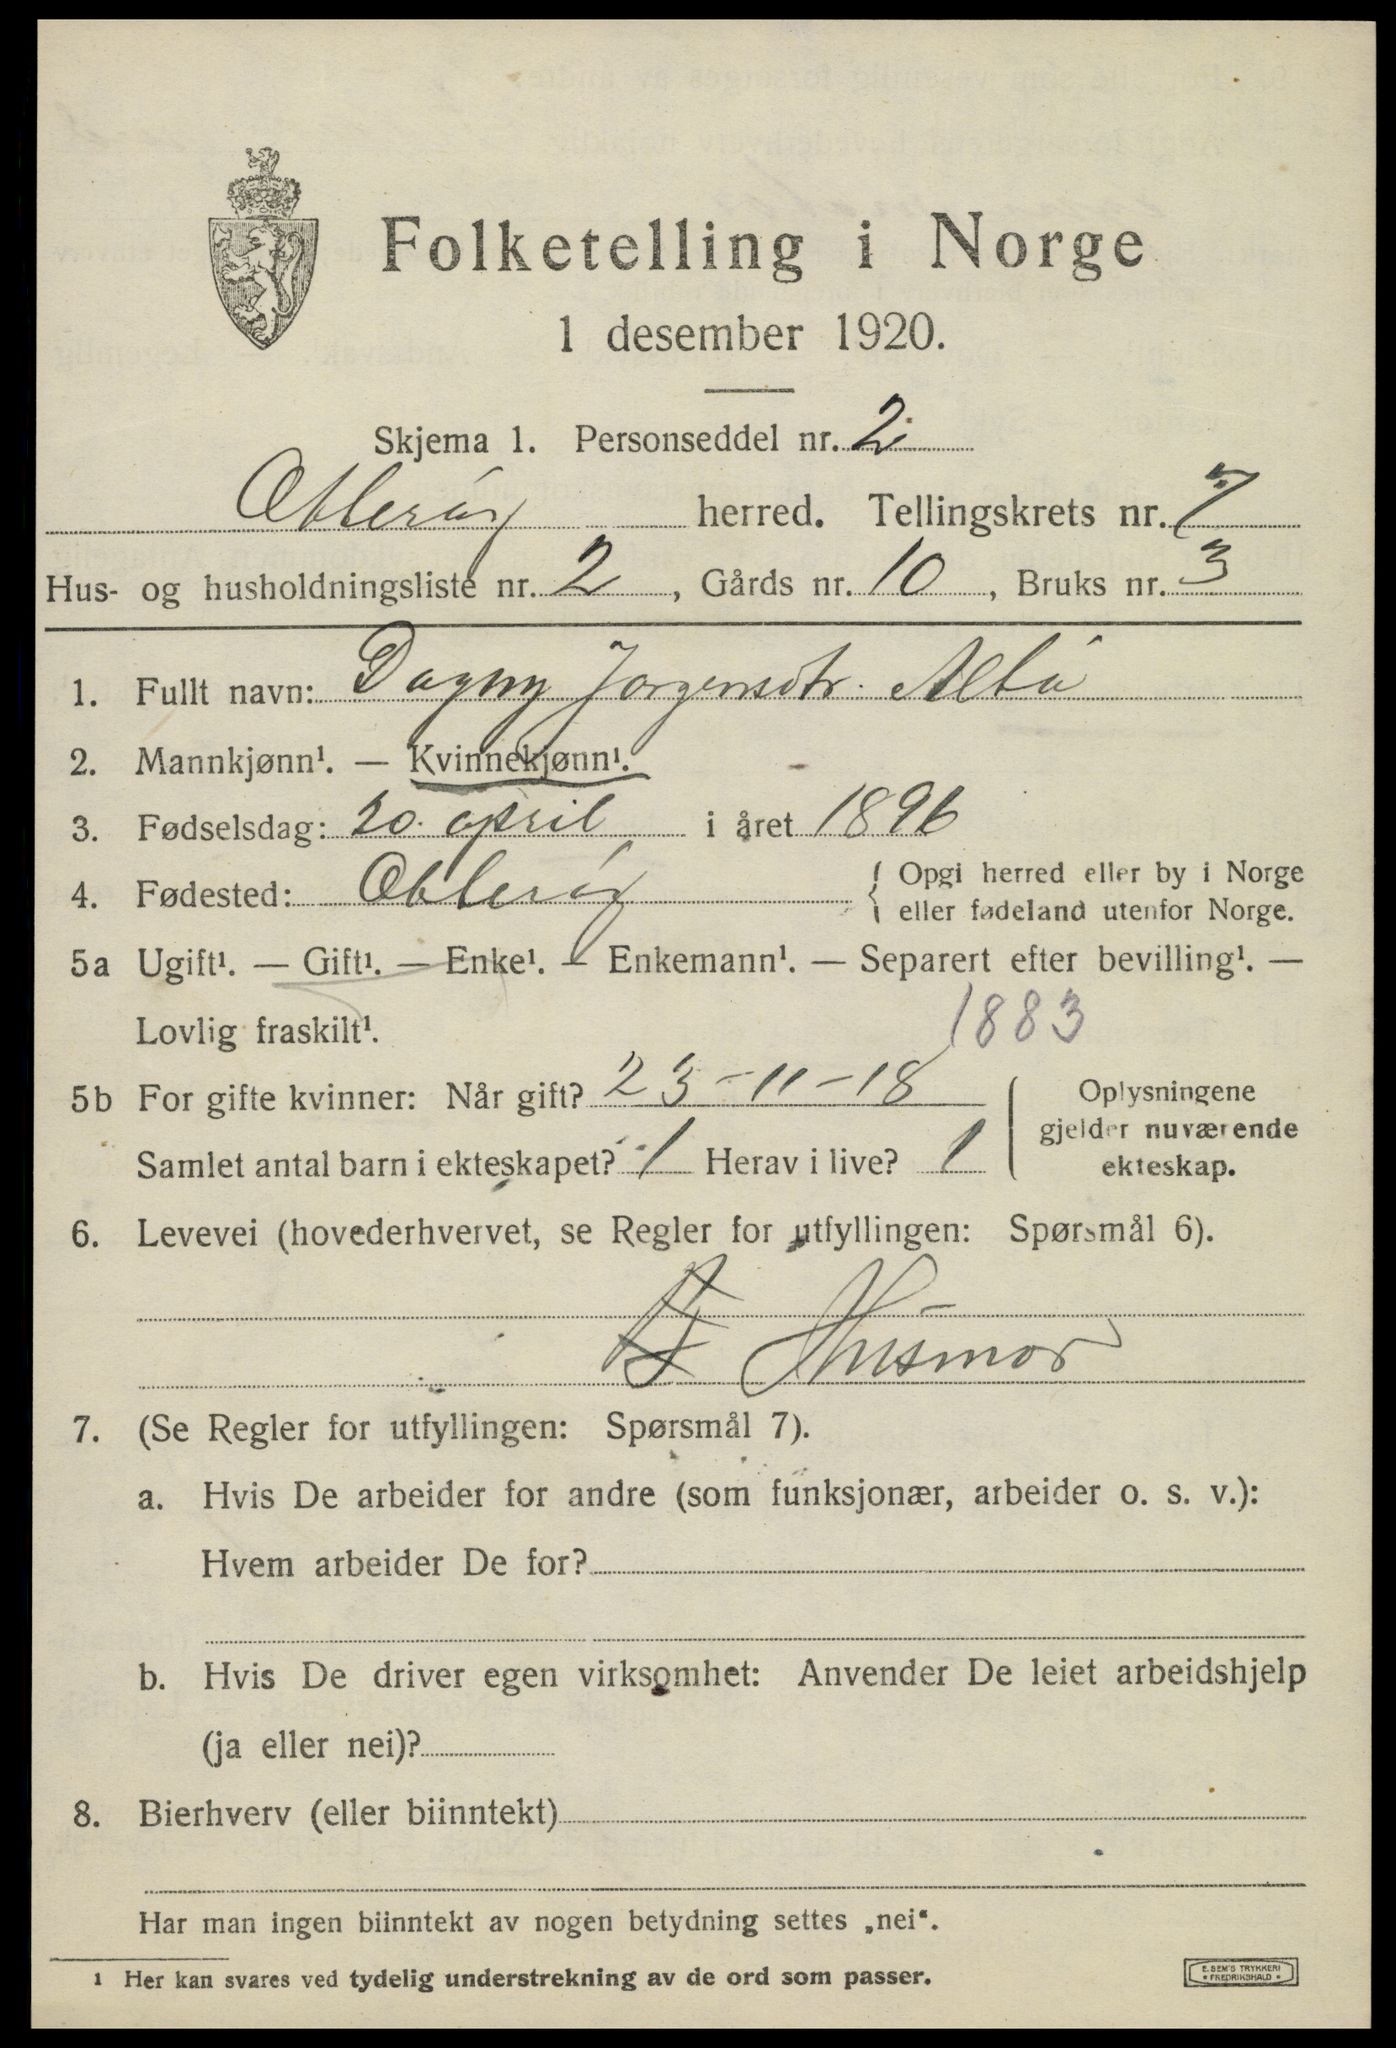 Folketelling i Norge
1 desember 1920.
Skjema 1. Personseddel nr. 2
Otterøy herred. Tellingskrets nr. 7
Hus- og husholdningsliste nr. 2, Gårds nr. 10, Bruks nr. 3
1. Fullt navn: Dagny Jørgensdtr. Altå
2. Mannkjønn¹. — Kvinnekjønn¹.
3. Fødselsdag: 20. april i året 1896
4. Fødested: Otterøy { Opgi herred eller by i Norge
eller fødeland utenfor Norge.
5a Ugift¹. — Gift¹. — Enke¹. — Enkemann¹. — Separert efter bevilling¹. —
Lovlig fraskilt¹. 1883
5b For gifte kvinner: Når gift? 23-11-18 Oplysningene
gjelder nuværende
Samlet antal barn i ekteskapet? 1 Herav i live? 1 ekteskap.
6. Levevei (hovederhvervet, se Regler for utfyllingen: Spørsmål 6).
Husmor
7. (Se Regler for utfyllingen: Spørsmål 7).
a. Hvis De arbeider for andre (som funksjonær, arbeider o. s. v.):
Hvem arbeider De for?
b. Hvis De driver egen virksomhet: Anvender De leiet arbeidshjelp
(ja eller nei)?
8. Bierhverv (eller biinntekt)
Har man ingen biinntekt av nogen betydning settes „nei“.
¹ Her kan svares ved tydelig understrekning av de ord som passer.
E. SEM'S TRYKKERI
• FREDRIKSHALD •